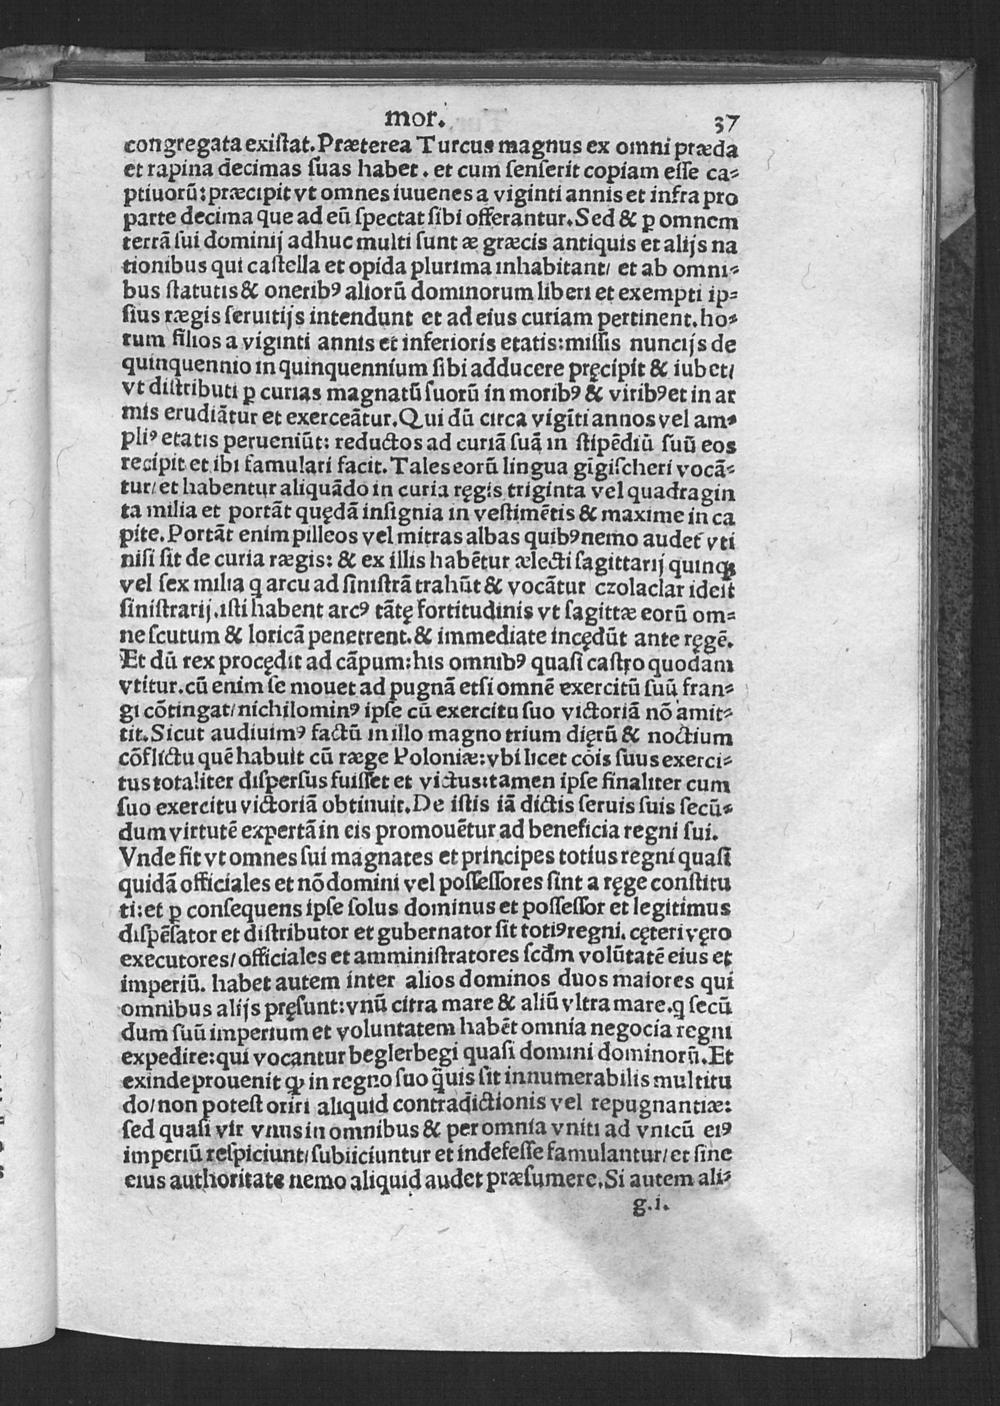 mor. 37
congregata existat. Præterea Turcus magnus ex omni præda
et rapina decimas suas habet. et cum senserit copiam esse ca⸗
ptiuorũ: præcipit vt omnes iuuenes a viginti annis et infra pro
parte decima que ad eũ spectat sibi offerantur. Sed & ꝑ omnem
terrã sui dominij adhuc multi sunt æ græcis antiquis et alijs na
tionibus qui castella et opida plurima inhabitant/ et ab omni⸗
bus statutis & onerib⁹ aliorũ dominorum liberi et exempti ip⸗
sius rægis seruitijs intendunt et ad eius curiam pertinent. ho⸗
rum filios a viginti annis et inferioris etatis: missis nuncijs de
quinquennio in quinquennium sibi adducere pręcipit & iubet/
vt distributi ꝑ curias magnatũ suorũ in morib⁹ & virib⁹ et in ar
mis erudiãtur et exerceãtur. Qui dũ circa vigĩti annos vel am⸗
pli⁹ etatis perueniũt: reductos ad curiã suã in stipẽdiũ suũ eos
recipit et ibi famulari facit. Tales eorũ lingua gĩgischeri vocã⸗
tur/ et habentur aliquãdo in curia ręgis triginta vel quadragin
ta milia et portãt quędã insignia in vestimẽtis & maxime in ca
pite. Portãt enim pilleos vel mitras albas quib⁹ nemo audet vti
nisi sit de curia rægis: & ex illis habẽtur ælecti sagittarij quinqꝫ
vel sex milia q̃ arcu ad sinistrã trahũt & vocãtur czolaclar ideĩt
sinistrarij. isti habent arc⁹ tãtę fortitudinis vt sagittæ eorũ om⸗
ne scutum & loricã penetrent. & immediate incędũt ante ręgẽ.
Et dũ rex procędit ad cãpum: his omnib⁹ quasi castro quodam
vtitur. cũ enim se mouet ad pugnã etsi omnẽ exercitũ suũ fran⸗
gi cõtingat/ nichilomin⁹ ipse cũ exercitu suo victoriã nõ amit⸗
tit. Sicut audiuim⁹ factũ in illo magno trium dięrũ & noctium
cõflictu quẽ habuit cũ ræge Poloniæ: vbi licet cõis suus exerci⸗
tus totaliter dispersus fuisset et victus: tamen ipse finaliter cum
suo exercitu victoriã obtinuit. De istis iã dictis seruis suis secũ⸗
dum virtutẽ expertã in eis promouẽtur ad beneficia regni sui.
Vnde fit vt omnes sui magnates et principes totius regni quasi
quidã officiales et nõ domini vel possessores sint a ręge constitu
ti: et ꝑ consequens ipse solus dominus et possessor et legitimus
dispẽsator et distributor et gubernator sit toti⁹ regni. cęteri vęro
executores/ officiales et amministratores scd̃m volũtatẽ eius et
imperiũ. habet autem inter alios dominos duos maiores qui
omnibus alijs pręsunt: vnũ citra mare & aliũ vltra mare. q̃ secũ
dum suũ imperium et voluntatem habẽt omnia negocia regni
expedire: qui vocantur beglerbegi quasi domini dominorũ. Et
exinde prouenit ꝙ in regno suo q̃uis sit innumerabilis multitu
do/ non potest oriri aliquid contradictionis vel repugnantiæ:
sed quasi vir vnus in omnibus & per omnia vniti ad vnicũ ei⁹
imperiũ respiciunt/ subiiciuntur et indefesse famulantur/ et sine
eius authoritate nemo aliquid audet præsumere. Si autem ali⸗
g.i.